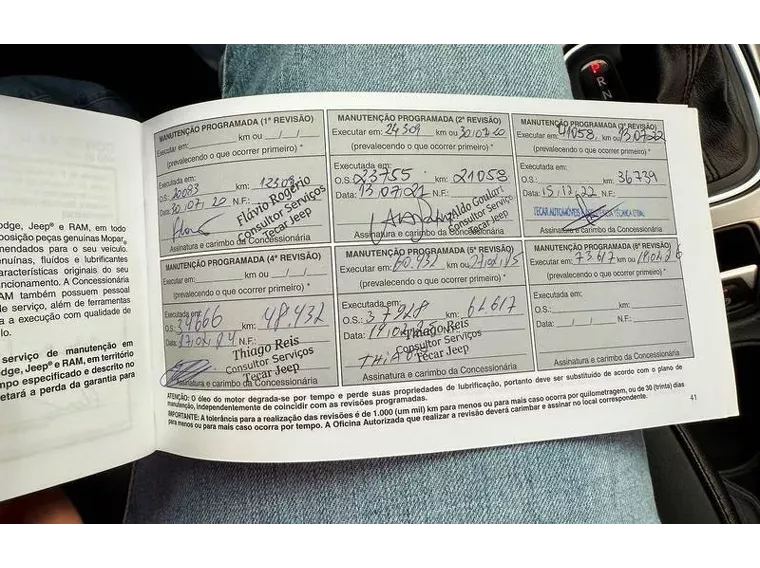 odge, Jeep® e RAM, em todo
posição peças genuínas Mopar,
mendados para o seu veículo.
enuínas, fluidos e lubrificantes
aracterísticas originais do seu
ncionamento. A Concessionária
AM também possuem pessoal
e serviço, além de ferramentas
a a execução com qualidade de
lo.
serviço de manutenção em
odge, Jeep® e RAM, em território
mpo especificado e descrito no
etará a perda da garantia para
MANUTENÇÃO PROGRAMADA (1ª REVISÃO)
Executar em: km ou _/_/_
(prevalecendo o que ocorrer primeiro) *
Executada em:
O.S.: 20083 km: 12309
Data: 30/07/20 N.F.:
Flávio Rogério
Consultor Serviços
Tecar Jeep
Assinatura e carimbo da Concessionária
MANUTENÇÃO PROGRAMADA (2ª REVISÃO)
Executar em: 24309 km ou 30/07/20
(prevalecendo o que ocorrer primeiro) *
Executada em:
O.S.: 23755 km: 21058
Data: 13/07/21 N.F.:
aldo Goulart
Consultor Serviços
Tecar Jeep
Assinatura e carimbo da Concessionária
MANUTENÇÃO PROGRAMADA (3ª REVISÃO)
Executar em: 41058 km ou 13/07/22
(prevalecendo o que ocorrer primeiro) *
Executada em:
O.S.: km: 36739
Data: 15/12/22 N.F.:
TECAR AUTOMÓVEIS
Assinatura e carimbo da Concessionária
MANUTENÇÃO PROGRAMADA (4ª REVISÃO)
Executar em: km ou _/_/_
(prevalecendo o que ocorrer primeiro) *
Executada em:
O.S.: 34666 km: 48.432
Data: N.F.:
Thiago Reis
Consultor Serviços
Tecar Jeep
Assinatura e carimbo da Concessionária
MANUTENÇÃO PROGRAMADA (5ª REVISÃO)
Executar em: 60.432 km ou
(prevalecendo o que ocorrer primeiro) *
Executada em:
O.S.: 37928 km: 61617
Data: N.F.:
Thiago Reis
Consultor Serviços
Tecar Jeep
Assinatura e carimbo da Concessionária
MANUTENÇÃO PROGRAMADA (6ª REVISÃO)
Executar em: 73617 km ou
(prevalecendo o que ocorrer primeiro) *
Executada em:
O.S.: km:
Data: _/_/_ N.F.:
Assinatura e carimbo da Concessionária
ATENÇÃO: O óleo do motor degrada-se por tempo e perde suas propriedades de lubrificação, portanto deve ser substituído de acordo com o plano de
manutenção, independentemente de coincidir com as revisões programadas.
IMPORTANTE: A tolerância para a realização das revisões é de 1.000 (um mil) km para menos ou para mais caso ocorra por quilometragem, ou de 30 (trinta) dias
para menos ou para mais caso ocorra por tempo. A Oficina Autorizada que realizar a revisão deverá carimbar e assinar no local correspondente.
41
P
R
N